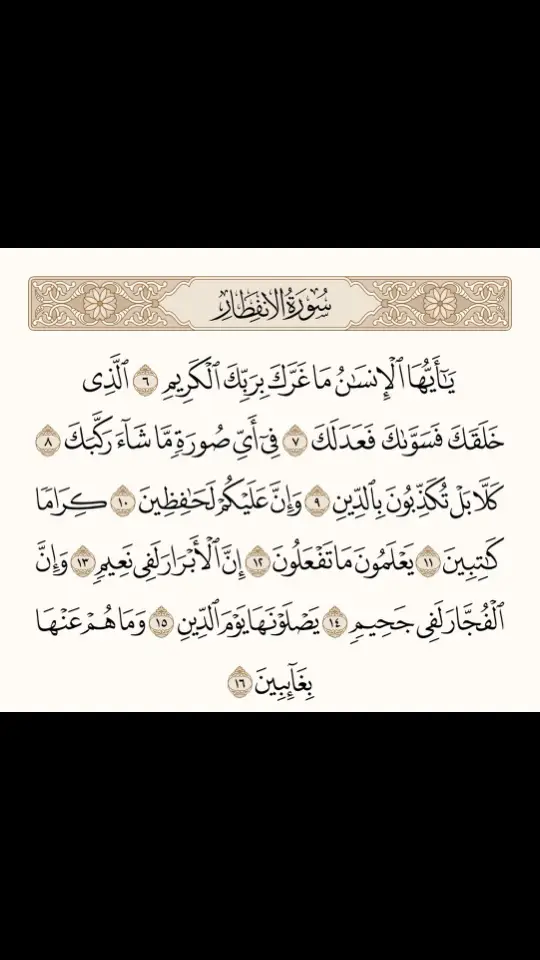 سُورَةُ الانفِطَارِ
يَـٰٓأَيُّهَا ٱلْإِنسَـٰنُ مَا غَرَّكَ بِرَبِّكَ ٱلْكَرِيمِ ٦ ٱلَّذِى
خَلَقَكَ فَسَوَّىٰكَ فَعَدَلَكَ ٧ فِىٓ أَىِّ صُورَةٍ مَّا شَآءَ رَكَّبَكَ ٨
كَلَّا بَلْ تُكَذِّبُونَ بِٱلدِّينِ ٩ وَإِنَّ عَلَيْكُمْ لَحَـٰفِظِينَ ١٠ كِرَامًا
كَـٰتِبِينَ ١١ يَعْلَمُونَ مَا تَفْعَلُونَ ١٢ إِنَّ ٱلْأَبْرَارَ لَفِى نَعِيمٍ ١٣ وَإِنَّ
ٱلْفُجَّارَ لَفِى جَحِيمٍ ١٤ يَصْلَوْنَهَا يَوْمَ ٱلدِّينِ ١٥ وَمَا هُمْ عَنْهَا
بِغَآئِبِينَ ١٦